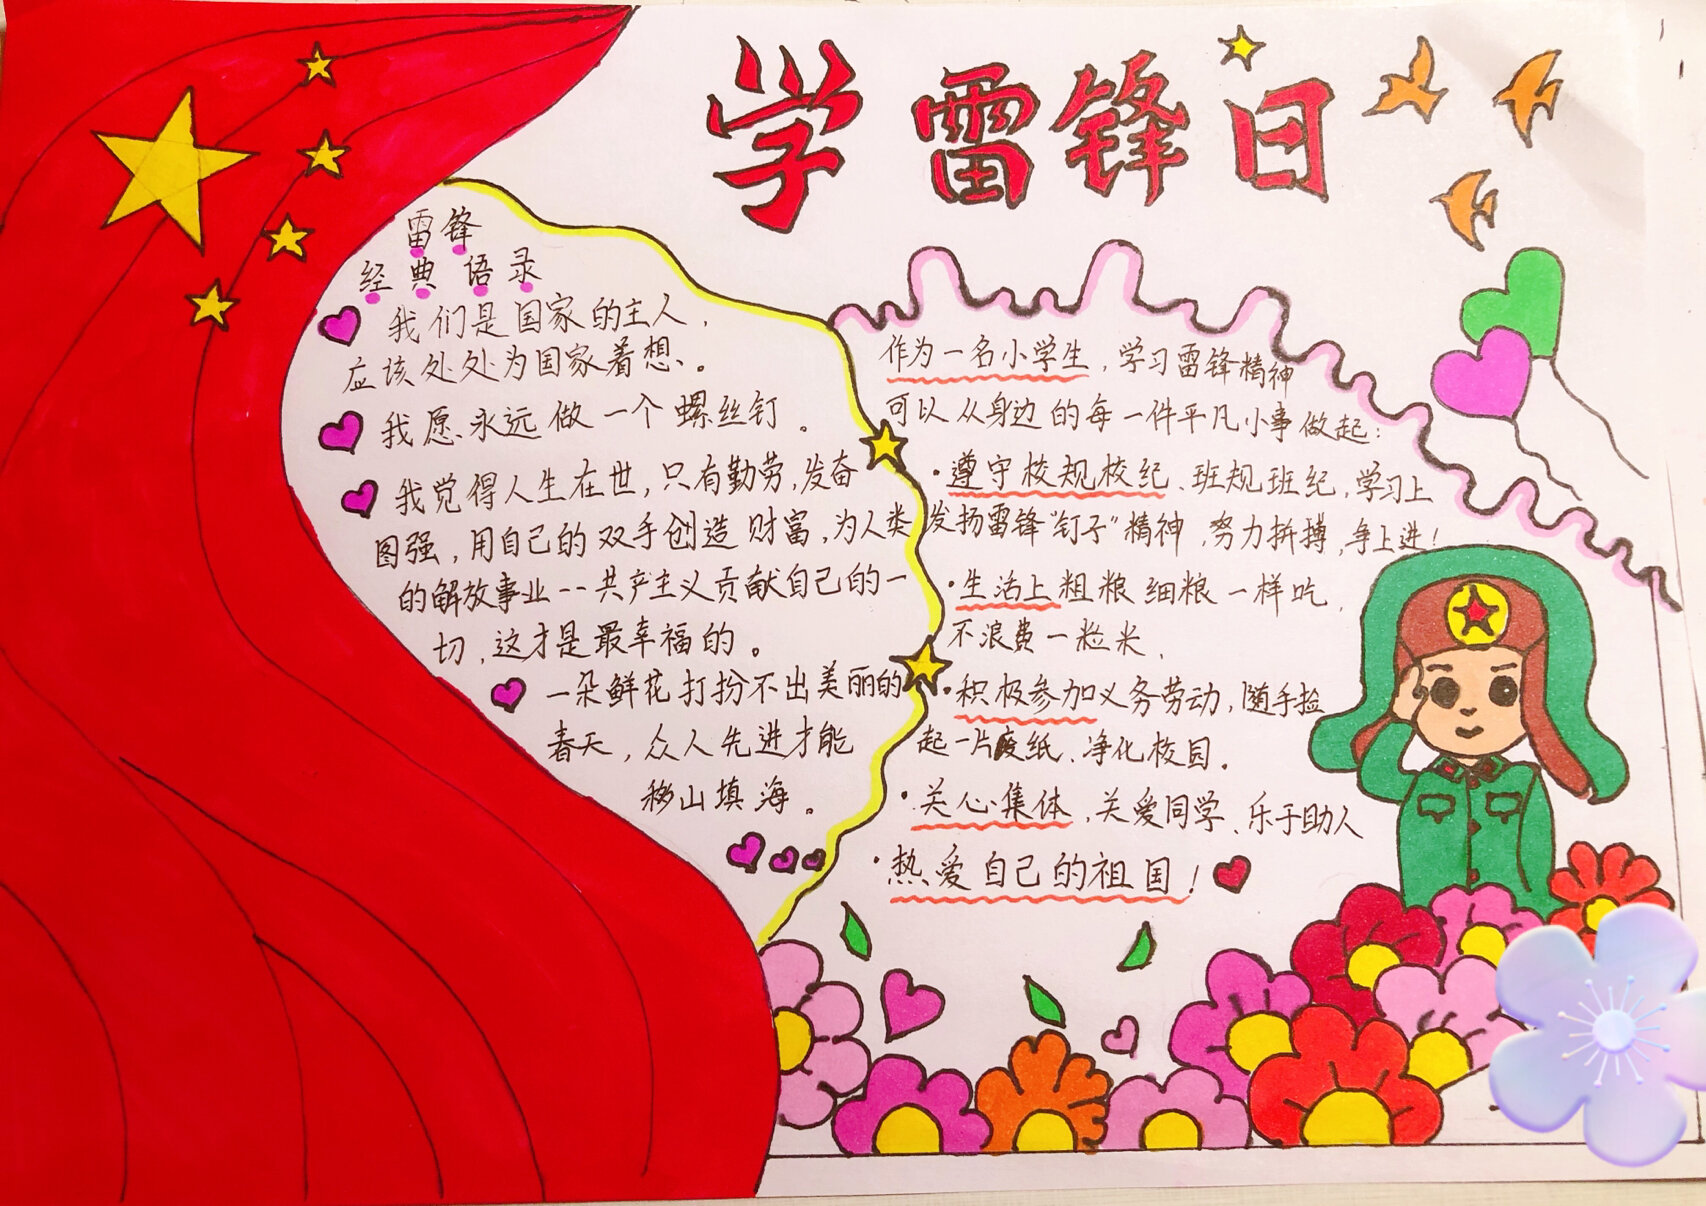 学雷锋日
雷锋
经典语录
我们是国家的主人,
应该处处为国家着想。
我愿永远做一个螺丝钉。
我觉得人生在世,只有勤劳,发奋
图强,用自己的双手创造财富,为人类
的解放事业--共产主义贡献自己的一
切,这才是最幸福的。
一朵鲜花打扮不出美丽的
春天,众人先进才能
移山填海。
作为一名小学生,学习雷锋精神
可以从身边的每一件平凡小事做起:
·遵守校规校纪、班规班纪,学习上
发扬雷锋“钉子”精神,努力拼搏,争上进!
·生活上粗粮细粮一样吃,
不浪费一粒米、
·积极参加义务劳动,随手捡
起一片废纸、净化校园。
·关心集体,关爱同学、乐于助人
·热爱自己的祖国!